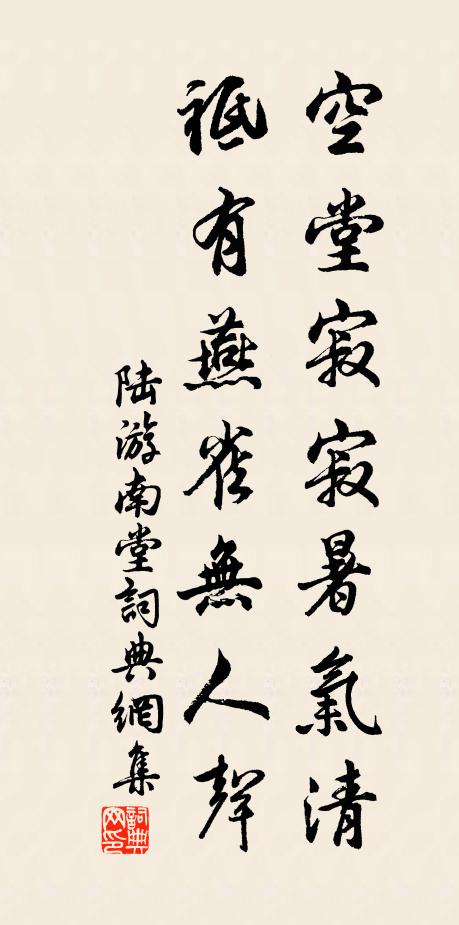 空堂寂寂暑氣清
祗有燕雀無人聲
陆游南堂詞典網集
詞典網印